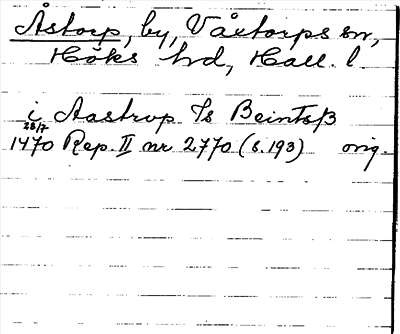 Åstorp, by, Våxtorps sn,
Höks hd, Hall. l.
i Aastrop Is Beintsß
28/7
1470 Rep. II nr 2770 (s. 193) orig.